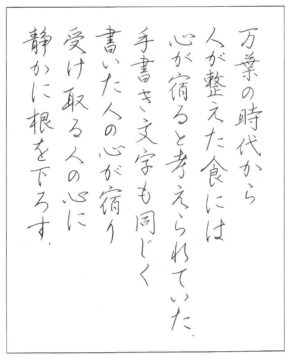 万葉の時代から
人が整えた食には
心が宿ると考えられていた.
手書き文字も同じく
書いた人の心が宿り
受け取る人の心に
静かに根を下ろす.